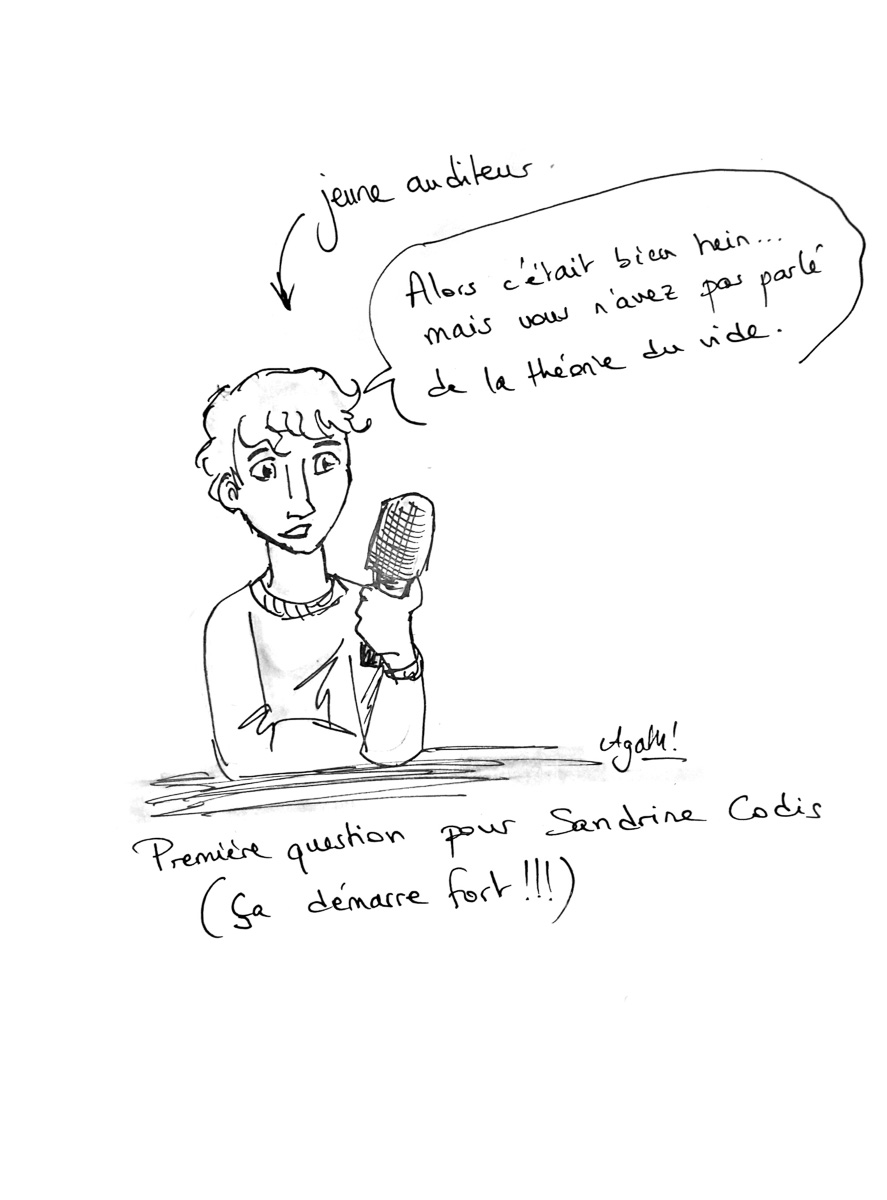 jeune auditeur
Alors c'était bien hein...
mais vous n'avez pas parlé
de la théorie du vide.
Première question pour Sandrine Codis
(ça démarre fort!!!)